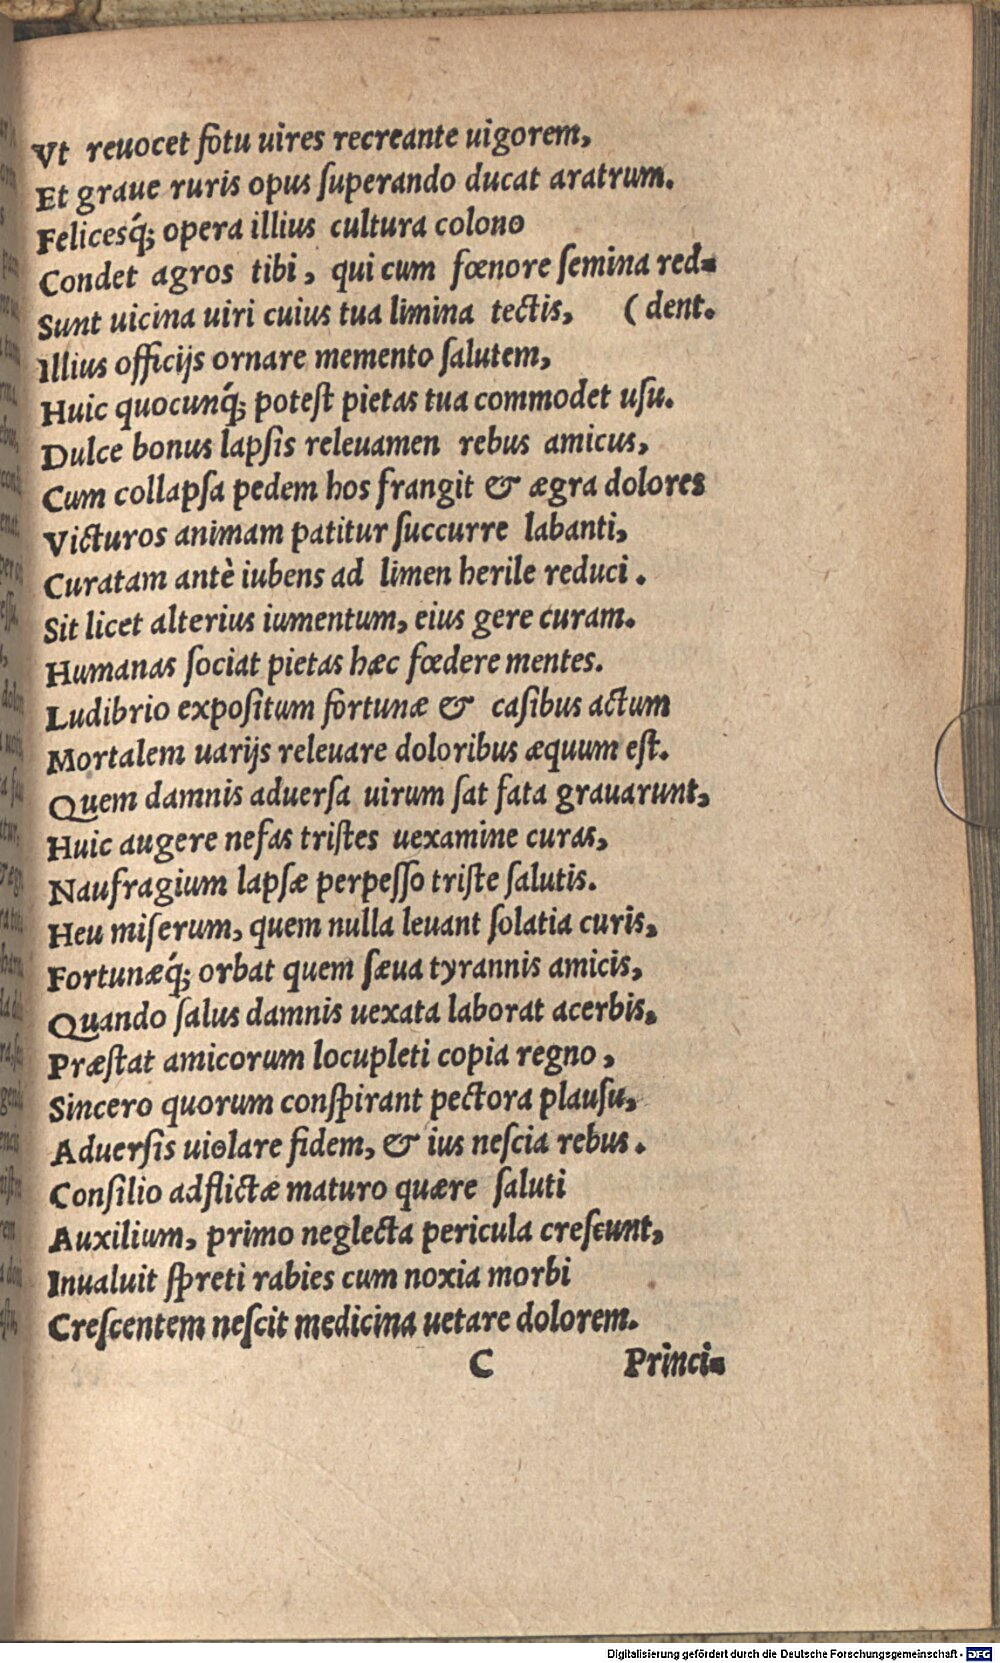 Vt reuocet fotu uires recreante uigorem,
Et graue ruris opus ſuperando ducat aratrum.
Felicesq́; opera illius cultura colono
Condet agros tibi, qui cum fœnore ſemina red⸗
Sunt uicina uiri cuius tua limina tectis, (dent.
Illius officijs ornare memento ſalutem,
Huic quocunq́; poteſt pietas tua commodet uſu.
Dulce bonus lapſis releuamen rebus amicus,
Cum collapſa pedem bos frangit & ægra dolores
Victuros animam patitur ſuccurre labanti,
Curatam antè iubens ad limen herile reduci.
Sit licet alterius iumentum, eius gere curam.
Humanas ſociat pietas hæc fœdere mentes.
Ludibrio expoſitum fortunæ & caſibus actum
Mortalem uarijs releuare doloribus æquum eſt.
Quem damnis aduerſa uirum ſat fata grauarunt,
Huic augere nefas triſtes uexamine curas,
Naufragium lapſæ perpeſſo triſte ſalutis.
Heu miſerum, quem nulla leuant ſolatia curis,
Fortunæq́; orbat quem ſæua tyrannis amicis,
Quando ſalus damnis uexata laborat acerbis,
Præſtat amicorum locupleti copia regno,
Sincero quorum conſpirant pectora plauſu,
Aduerſis uiolare fidem, & ius neſcia rebus.
Conſilio adflictæ maturo quære ſaluti
Auxilium, primo neglecta pericula creſcunt,
Inualuit ſpreti rabies cum noxia morbi
Creſcentem neſcit medicina uetare dolorem.
C Princi⸗
Digitalisierung gefördert durch die Deutsche Forschungsgemeinschaft - DFG